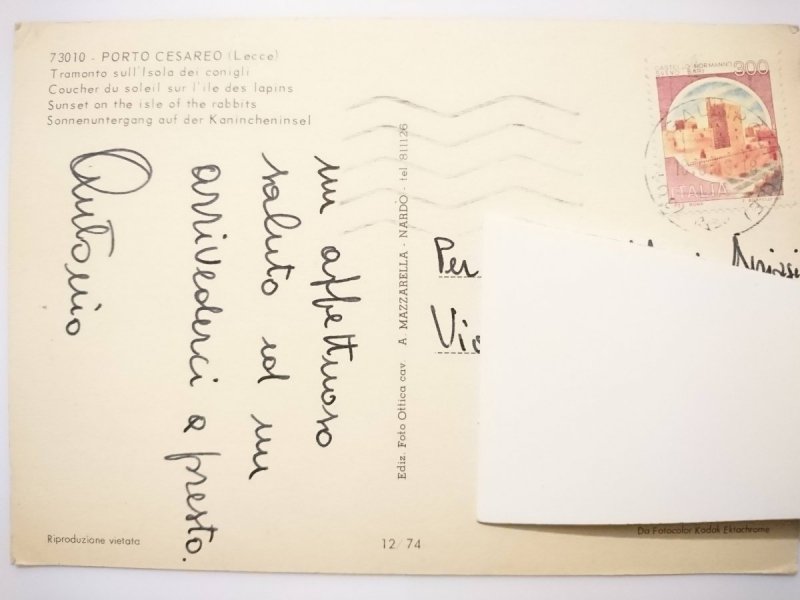 73010 - PORTO CESAREO (Lecce)
Tramonto sull'Isola dei conigli
Coucher du soleil sur l'ile des lapins
Sunset on the isle of the rabbits
Sonnenuntergang auf der Kanincheninsel
un affettuoso
saluto ed un
arrivederci a presto.
Antonio
Ediz. Foto Ottica cav A. MAZZARELLA - NARDO - tel 811126
CASTELLO NORMANNO
SVEVO BARI
300
ITALIA
Per
Via
Riproduzione vietata
12/74
Da Fotocolor Kodak Ektachrome